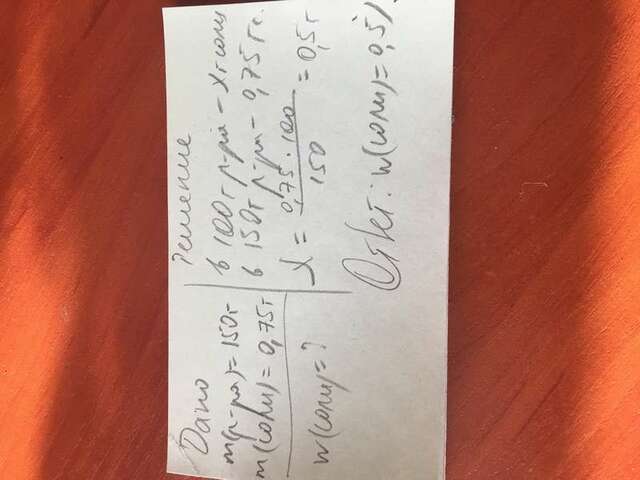 Дано
m(р-ра)=150г
m(соли)=0,75г
w(соли)=?
Решение
в 100г р-ра – Xг соли
в 150г р-ра – 0,75г с.
X = 0,75 · 100 / 150 = 0,5г
Ответ: w(соли)=0,5%